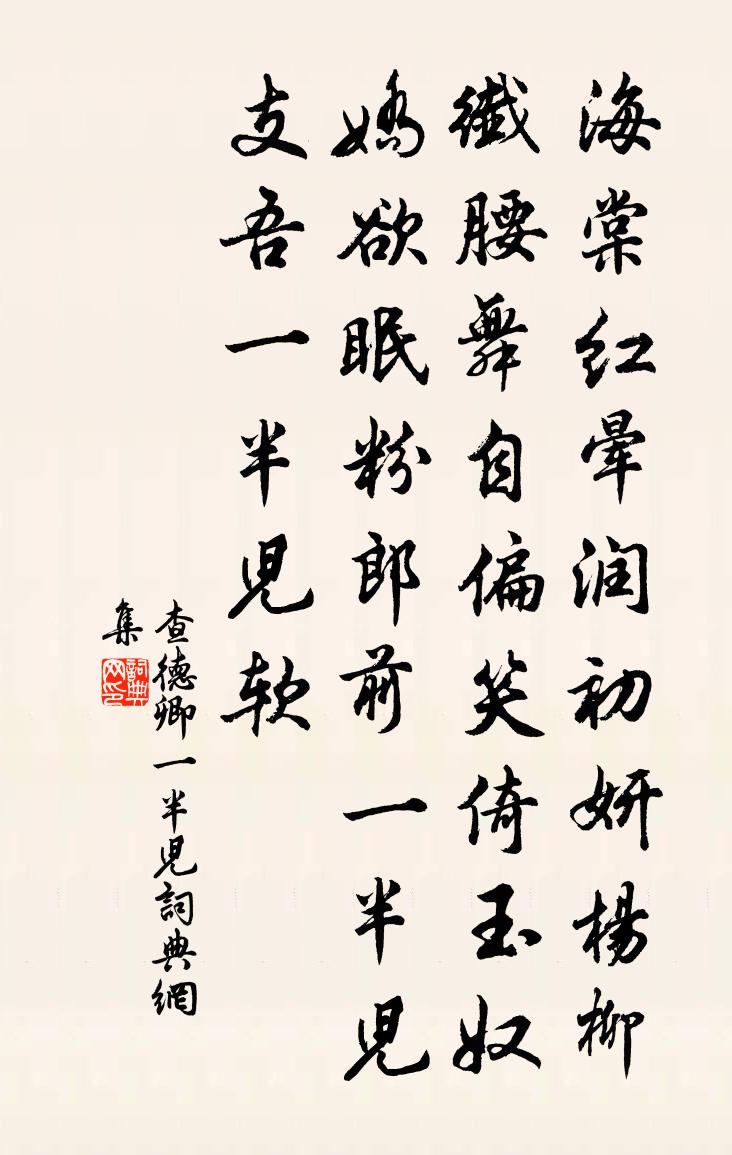 海棠紅暈潤初妍楊柳
纖腰舞自偏笑倚玉奴
嬌欲眠粉郎前一半兒
支吾一半兒軟
查德卿一半兒詞典網
集
詞典网印